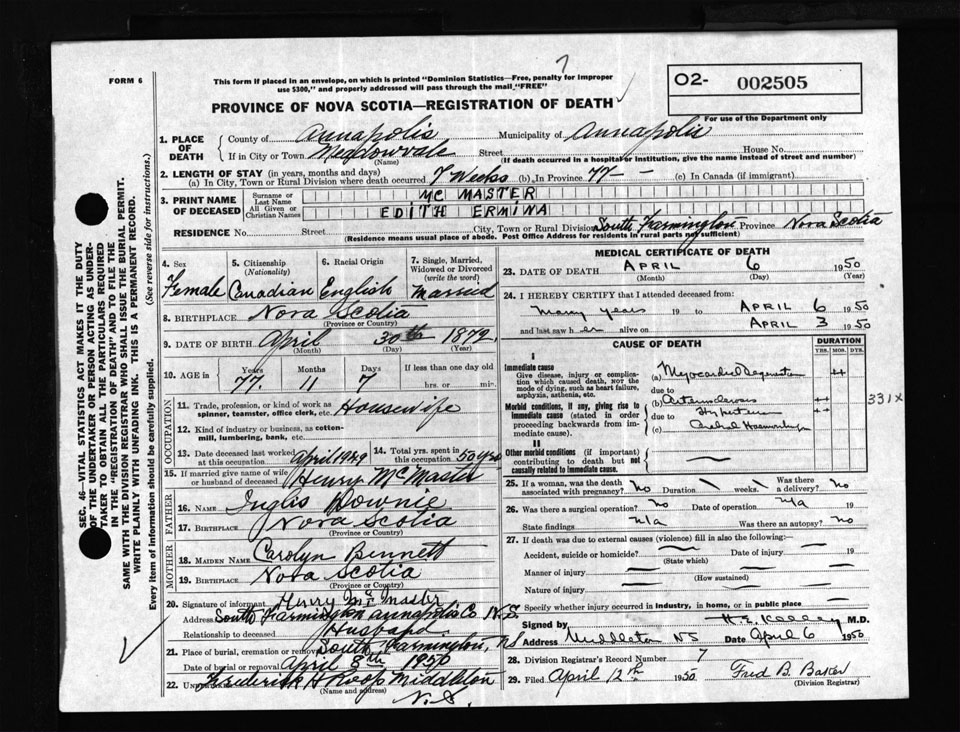 FORM 6
This form if placed in an envelope, on which is printed "Dominion Statistics—Free, penalty for improper
use $300," and properly addressed will pass through the mail "FREE"
O2- 002505
For use of the Department only
PROVINCE OF NOVA SCOTIA—REGISTRATION OF DEATH
1. PLACE OF DEATH County of Annapolis Municipality of Annapolis
If in City or Town Meadowvale (Name) Street House No.
(If death occurred in a hospital or institution, give the name instead of street and number)
2. LENGTH OF STAY (in years, months and days)
(a) In City, Town or Rural Division where death occurred 7 Weeks (b) In Province 77 - (c) In Canada (if immigrant)
3. PRINT NAME OF DECEASED Surname or Last Name MC MASTER
All Given or Christian Names EDITH ERMINA
RESIDENCE No. Street City, Town or Rural Division South Farmington Province Nova Scotia
(Residence means usual place of abode. Post Office Address for residents in rural parts not sufficient)
4. Sex Female
5. Citizenship (Nationality) Canadian
6. Racial Origin English
7. Single, Married, Widowed or Divorced (write the word) Married
8. BIRTHPLACE Nova Scotia
(Province or Country)
9. DATE OF BIRTH April 30th 1872
(Month) (Day) (Year)
10. AGE in Years 77 Months 11 Days 7 If less than one day old hrs. or min.
OCCUPATION
11. Trade, profession, or kind of work as spinner, teamster, office clerk, etc. Housewife
12. Kind of industry or business, as cotton-mill, lumbering, bank, etc.
13. Date deceased last worked at this occupation April 1949
14. Total yrs. spent in this occupation 50 yrs
15. If married give name of wife or husband of deceased Henry McMaster
FATHER
16. NAME Inglis Downie
17. BIRTHPLACE Nova Scotia
(Province or Country)
MOTHER
18. MAIDEN NAME Carolyn Bennett
19. BIRTHPLACE Nova Scotia
(Province or Country)
20. Signature of informant Henry McMaster
Address South Farmington Annapolis Co N.S.
Relationship to deceased Husband
21. Place of burial, cremation or removal South Farmington, NS
Date of burial or removal April 8th 1950
22. Frederick Roop Middleton
(Name and address) N.S.
MEDICAL CERTIFICATE OF DEATH
23. DATE OF DEATH APRIL 6 1950
(Month) (Day) (Year)
24. I HEREBY CERTIFY that I attended deceased from:
Many years 19 to APRIL 6 1950
and last saw her alive on APRIL 3 1950
CAUSE OF DEATH
DURATION
YRS. MOS. DYS.
I
Immediate cause
Give disease, injury or complication which caused death, NOT the mode of dying, such as heart failure, asphyxia, asthenia, etc.
(a) Myocardial Degeneration ++
due to
Morbid conditions, if any, giving rise to immediate cause (stated in order proceeding backwards from immediate cause).
(b) Arteriosclerosis ++
due to Hypertension ++
(c) Cerebral Haemorrhage
331X
II
Other morbid conditions (if important) contributing to death but not causally related to immediate cause.
25. If a woman, was the death associated with pregnancy? No Duration weeks. Was there a delivery? No
26. Was there a surgical operation? No Date of operation N/a 19
State findings N/a Was there an autopsy? No
27. If death was due to external causes (violence) fill in also the following:—
Accident, suicide or homicide? Date of injury 19
(State which)
Manner of injury
(How sustained)
Nature of injury
Specify whether injury occurred in industry, in home, or in public place
Signed by H. E. Kelley M.D.
Address Middleton NS Date April 6 1950
28. Division Registrar's Record Number 7
29. Filed April 12th 1950 Fred B. Baker
(Division Registrar)
SEC. 46—VITAL STATISTICS ACT MAKES IT THE DUTY
OF THE UNDERTAKER OR PERSON ACTING AS UNDERTAKER TO OBTAIN ALL THE PARTICULARS REQUIRED
IN THE "REGISTRATION OF DEATH" AND TO FILE THE
SAME WITH THE DIVISION REGISTRAR WHO SHALL ISSUE THE BURIAL PERMIT.
WRITE PLAINLY WITH UNFADING INK. THIS IS A PERMANENT RECORD.
Every item of information should be carefully supplied. (See reverse side for instructions.)